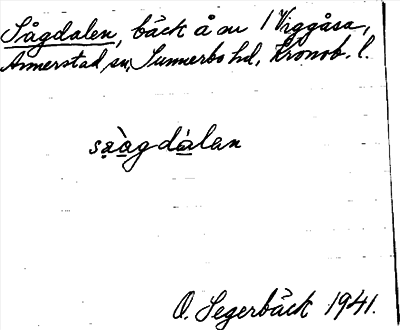 Sågdalen, bäck å en 1 Viggåsa,
Annerstad sn, Sunnerbo hd, Kronob. l.
sa̱ò̱gdá̱lan
O. Segerbäck 1941.